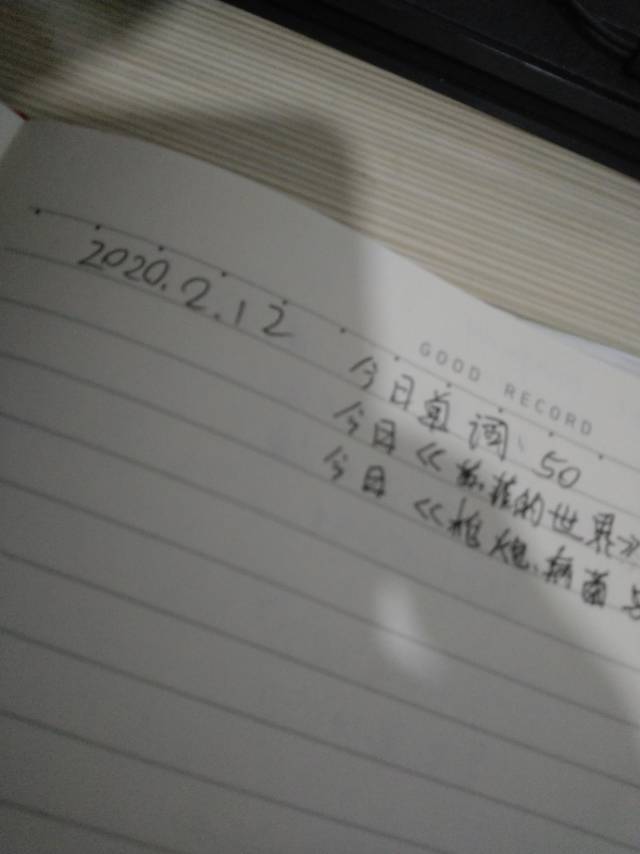 GOOD RECORD
2020.2.12
今日单词 50
今日《苏菲的世界》
今日《枪炮、病菌与